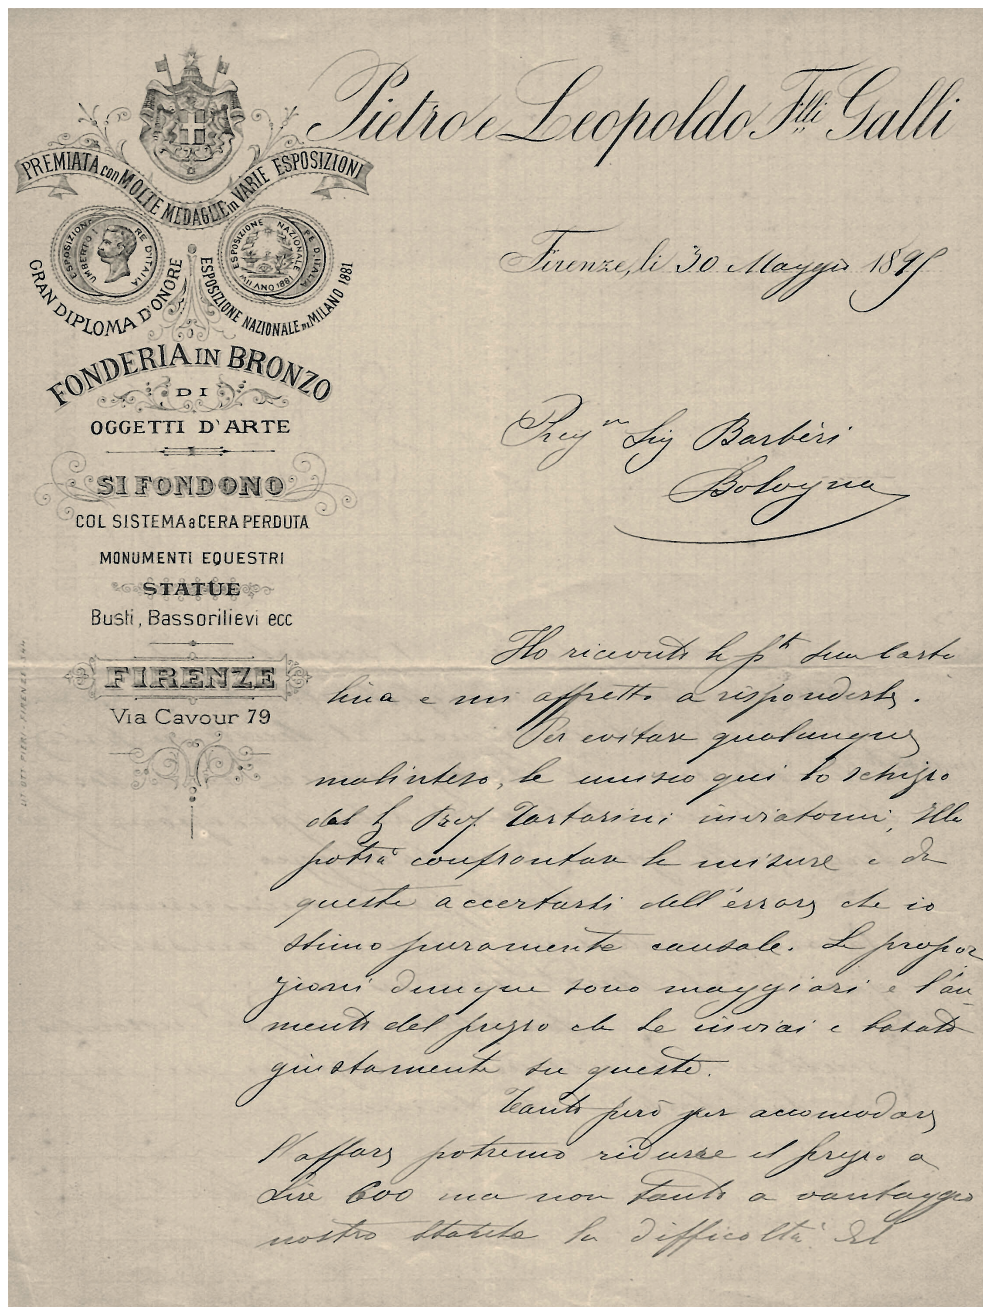 Pietro e Leopoldo F.lli Galli
PREMIATA con MOLTE MEDAGLIE in VARIE ESPOSIZIONI
UMBERTO I RE D'ITALIA
ESPOSIZIONE NAZIONALE
MILANO 1881
GRAN DIPLOMA D'ONORE
ESPOSIZIONE NAZIONALE DI MILANO 1881
FONDERIA IN BRONZO
DI
OGGETTI D'ARTE
SI FONDONO
COL SISTEMA a CERA PERDUTA
MONUMENTI EQUESTRI
STATUE
Busti, Bassorilievi ecc
FIRENZE
Via Cavour 79
Firenze, li 30 Maggio 1895
Preg.m Sig Barbèri
Bologna
Ho ricevuto la sua carto
lina e mi affretto a risponderle.
Per evitare qualunque
malinteso, le unisco qui lo schizzo
dal Prof. Tartarini inviatomi, Ella
potrà confrontare le misure e da
queste accertarsi dell'errore che io
stimo puramente causale. Le propor
zioni dunque sono maggiori e l'au-
mento del prezzo che Le inviai è basato
giustamente su queste.
Tanto però per accomodare
l'affare potremo ridurre il prezzo a
Lire 600 ma non tanto a vantaggio
nostro stante la difficoltà del